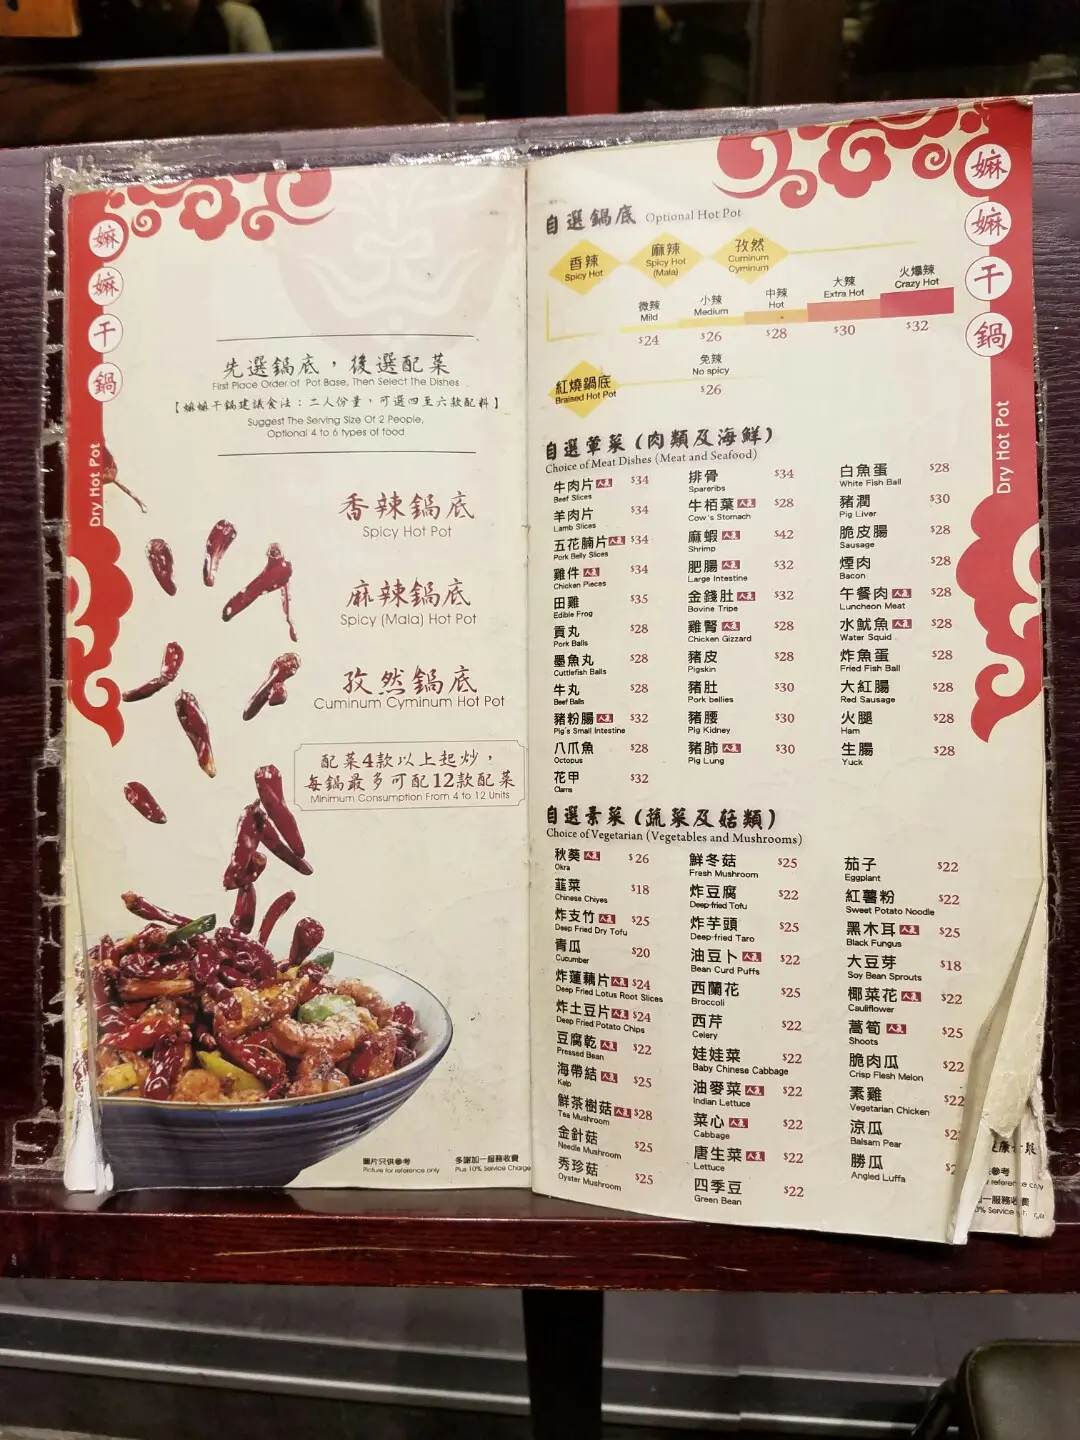 嫲
嫲
干
鍋
Dry Hot Pot
先選鍋底，後選配菜
First Place Order of Pot Base, Then Select The Dishes
【嫲嫲干鍋建議食法：二人份量，可選四至六款配料】
Suggest The Serving Size Of 2 People,
Optional 4 to 6 types of food
香辣鍋底
Spicy Hot Pot
麻辣鍋底
Spicy (Mala) Hot Pot
孜然鍋底
Cuminum Cyminum Hot Pot
配菜4款以上起炒，
每鍋最多可配12款配菜
Minimum Consumption From 4 to 12 Units
圖片只供參考
Picture for reference only
多謝加一服務收費
Plus 10% Service Charge
嫲
嫲
干
鍋
Dry Hot Pot
自選鍋底 Optional Hot Pot
香辣
Spicy Hot
麻辣
Spicy Hot
(Mala)
孜然
Cuminum
Cyminum
微辣
Mild
$24
小辣
Medium
$26
中辣
Hot
$28
大辣
Extra Hot
$30
火爆辣
Crazy Hot
$32
紅燒鍋底
Braised Hot Pot
免辣
No spicy
$26
自選葷菜（肉類及海鮮）
Choice of Meat Dishes (Meat and Seafood)
牛肉片 人氣 $34
Beef Slices
羊肉片 $34
Lamb Slices
五花腩片 人氣 $34
Pork Belly Slices
雞件 人氣 $34
Chicken Pieces
田雞 $35
Edible Frog
貢丸 $28
Pork Balls
墨魚丸 $28
Cuttlefish Balls
牛丸 $28
Beef Balls
豬粉腸 人氣 $32
Pig's Small Intestine
八爪魚 $28
Octopus
花甲 $32
Clams
排骨 $34
Spareribs
牛栢葉 人氣 $28
Cow's Stomach
麻蝦 人氣 $42
Shrimp
肥腸 人氣 $32
Large Intestine
金錢肚 人氣 $32
Bovine Tripe
雞腎 人氣 $28
Chicken Gizzard
豬皮 $28
Pigskin
豬肚 $30
Pork bellies
豬腰 $30
Pig Kidney
豬肺 人氣 $30
Pig Lung
白魚蛋 $28
White Fish Ball
豬潤 $30
Pig Liver
脆皮腸 $28
Sausage
煙肉 $28
Bacon
午餐肉 人氣 $28
Luncheon Meat
水魷魚 人氣 $28
Water Squid
炸魚蛋 $28
Fried Fish Ball
大紅腸 $28
Red Sausage
火腿 $28
Ham
生腸 $28
Yuck
自選素菜（蔬菜及菇類）
Choice of Vegetarian (Vegetables and Mushrooms)
秋葵 人氣 $26
Okra
韮菜 $18
Chinese Chiyes
炸支竹 人氣 $25
Deep Fried Dry Tofu
青瓜 $20
Cucumber
炸蓮藕片 人氣 $24
Deep Fried Lotus Root Slices
炸土豆片 人氣 $24
Deep Fried Potato Chips
豆腐乾 人氣 $22
Pressed Bean
海帶結 人氣 $25
Kelp
鮮茶樹菇 人氣 $28
Tea Mushroom
金針菇 $25
Needle Mushroom
秀珍菇 $25
Oyster Mushroom
鮮冬菇 $25
Fresh Mushroom
炸豆腐 $22
Deep-fried Tofu
炸芋頭 $25
Deep-fried Taro
油豆卜 人氣 $22
Bean Curd Puffs
西蘭花 $25
Broccoli
西芹 $22
Celery
娃娃菜 $22
Baby Chinese Cabbage
油麥菜 人氣 $22
Indian Lettuce
菜心 人氣 $22
Cabbage
唐生菜 人氣 $22
Lettuce
四季豆 $22
Green Bean
茄子 $22
Eggplant
紅薯粉 $22
Sweet Potato Noodle
黑木耳 人氣 $25
Black Fungus
大豆芽 $18
Soy Bean Sprouts
椰菜花 人氣 $22
Cauliflower
萵筍 人氣 $25
Shoots
脆肉瓜 $22
Crisp Flesh Melon
素雞 $22
Vegetarian Chicken
涼瓜
Balsam Pear
勝瓜
Angled Luffa
參考
reference only
一服務收費
0% Service